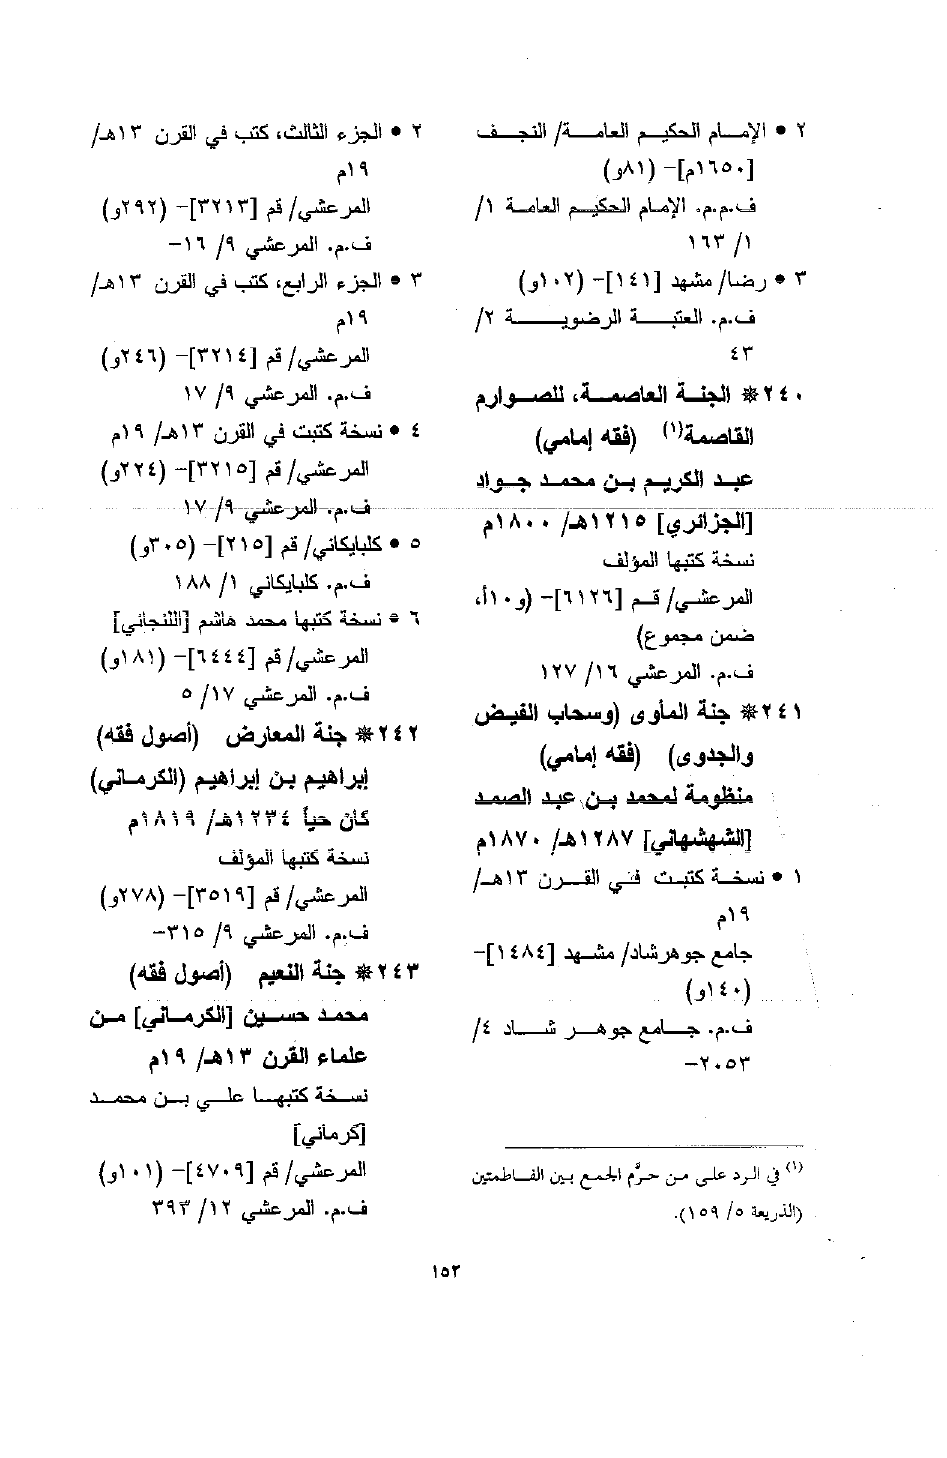 ٢ • الإمام الحكيم العامة/ النجف
[١٦٥٠م]- (٨١و)
ف.م.م. الإمام الحكيم العامة ١/
١/ ١٦٣
٣ • رضا/ مشهد [١٤١]- (١٠٢و)
ف.م. العتبة الرضوية ٢/
٤٣
٢٤٠* الجنة العاصمة، للصوارم
القاصمة(١) (فقه إمامي)
عبد الكريم بن محمد جواد
[الجزائري] ١٢١٥هـ/ ١٨٠٠م
نسخة كتبها المؤلف
المرعشي/ قم [٦١٢٦]- (و١٠أ،
ضمن مجموع)
ف.م. المرعشي ١٦/ ١٢٧
٢٤١* جنة المأوى (وسحاب الفيض
والجدوى) (فقه إمامي)
منظومة لمحمد بن عبد الصمد
[الشهشهاني] ١٢٨٧هـ/ ١٨٧٠م
١ • نسخة كتبت في القرن ١٣هـ/
١٩م
جامع جوهرشاد/ مشهد [١٤٨٤]-
(١٤٠و)
ف.م. جامع جوهر شاد ٤/
٢٠٥٣-
(١) في الرد على من حرَّم الجمع بين الفاطمتين
(الذريعة ٥/ ١٥٩).
٢ • الجزء الثالث، كتب في القرن ١٣هـ/
١٩م
المرعشي/ قم [٣٢١٣]- (٢٩٢و)
ف.م. المرعشي ٩/ ١٦-
٣ • الجزء الرابع، كتب في القرن ١٣هـ/
١٩م
المرعشي/ قم [٣٢١٤]- (٢٤٦و)
ف.م. المرعشي ٩/ ١٧
٤ • نسخة كتبت في القرن ١٣هـ/ ١٩م
المرعشي/ قم [٣٢١٥]- (٢٢٤و)
ف.م. المرعشي ٩/ ١٧
٥ • كلبايكاني/ قم [٢١٥]- (٣٠٥و)
ف.م. كلبايكاني ١/ ١٨٨
٦ • نسخة كتبها محمد هاشم [اللنجاني]
المرعشي/ قم [٦٤٤٤]- (١٨١و)
ف.م. المرعشي ١٧/ ٥
٢٤٢* جنة المعارض (أصول فقه)
إبراهيم بن إبراهيم (الكرماني)
كان حياً ١٢٣٤هـ/ ١٨١٩م
نسخة كتبها المؤلف
المرعشي/ قم [٣٥١٩]- (٢٧٨و)
ف.م. المرعشي ٩/ ٣١٥-
٢٤٣* جنة النعيم (أصول فقه)
محمد حسين [الكرماني] من
علماء القرن ١٣هـ/ ١٩م
نسخة كتبها علي بن محمد
[كرماني]
المرعشي/ قم [٤٧٠٩]- (١٠١و)
ف.م. المرعشي ١٢/ ٣٩٣
١٥٢